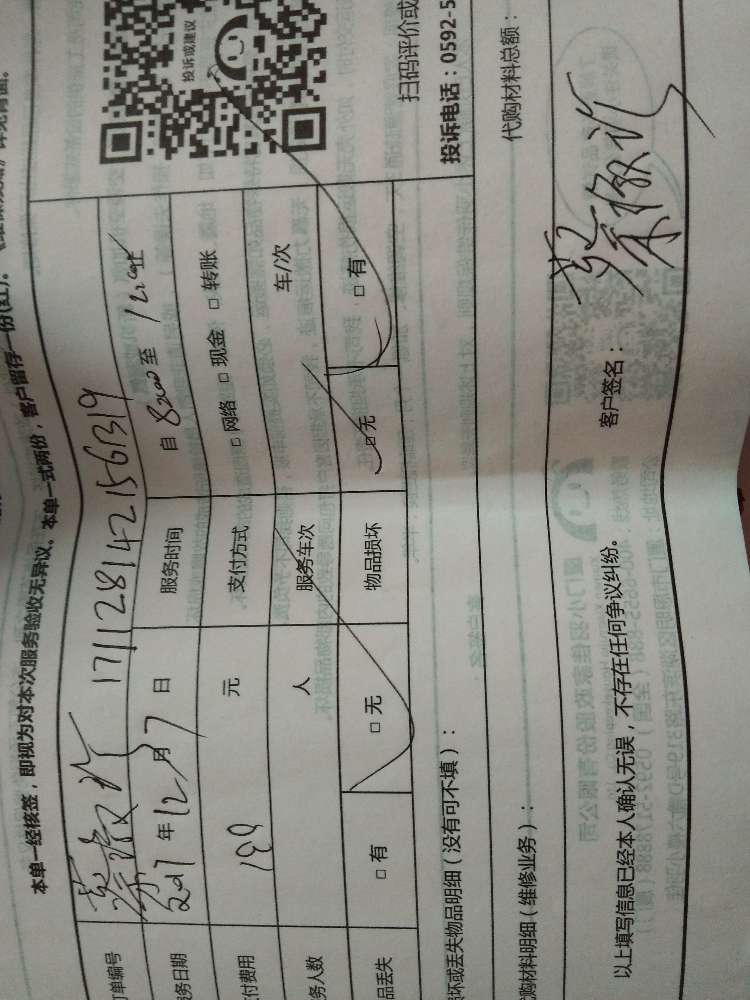 本单一经核签，即视为对本次服务验收无异议。本单一式两份，客户留存一份(红)。
订单编号 蔡 1711281421561319
服务日期 2017 年 12 月 7 日 服务时间 自 8:00 至 12:00止
支付费用 199 元 支付方式 □ 网络 □ 现金 □ 转账
服务人数 人 服务车次 车/次
物品丢失 □ 有 □ 无 物品损坏 □ 无 □ 有
投诉或建议
扫码评价或
损坏或丢失物品明细（没有可不填）： 投诉电话：0592-5
代购材料明细（维修业务）： 代购材料总额：
客户签名： 蔡
以上填写信息已经本人确认无误，不存在任何争议纠纷。